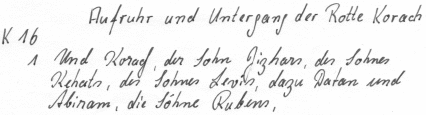 Aufruhr und Untergang der Rotte Korach
K 16
1 Und Korach, der Sohn Jizhars, des Sohnes
Kehats, des Sohnes Levis, dazu Datan und
Abiram, die Söhne Rubens,